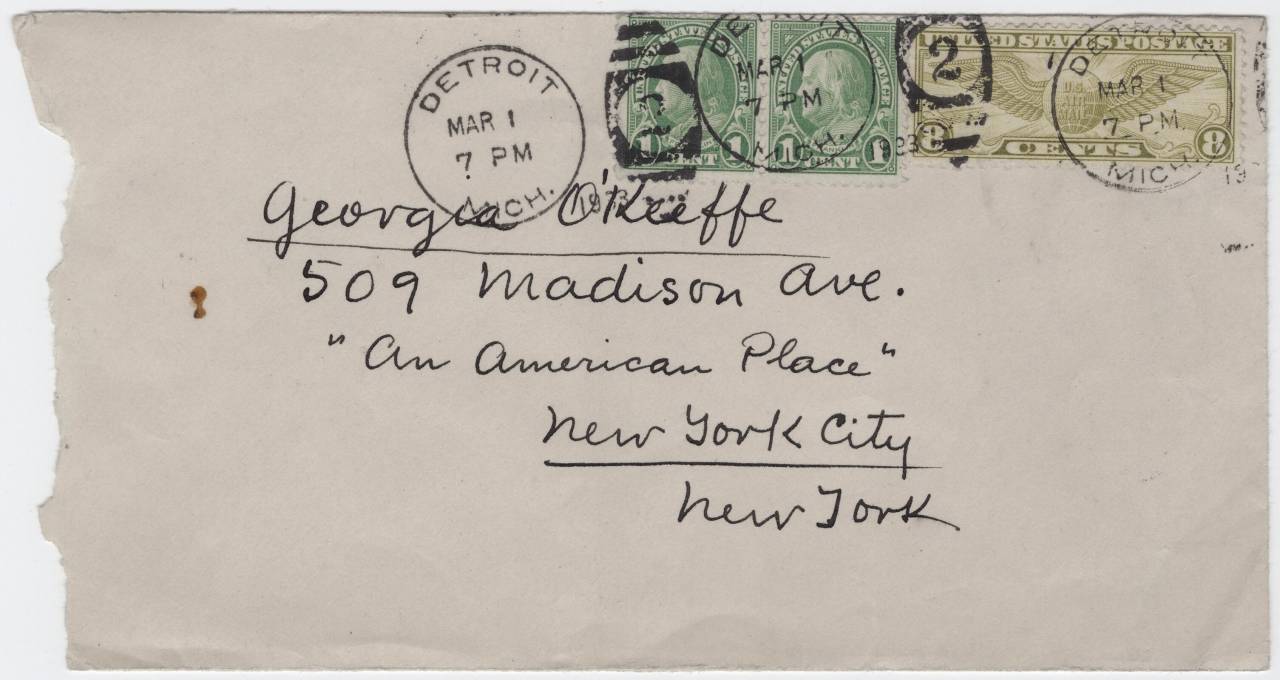 DETROIT
MAR 1
7 PM
MICH.
UNITED STATES POSTAGE
1 CENT 1
UNITED STATES POSTAGE
1 CENT 1
DETROIT
MAR 1
7 PM
MICH.
2
UNITED STATES POSTAGE
U.S.
AIR
MAIL
8 CENTS 8
DETROIT
MAR 1
7 PM.
MICH.
Georgia O'Keeffe
509 Madison Ave.
"An American Place"
New York City
New York